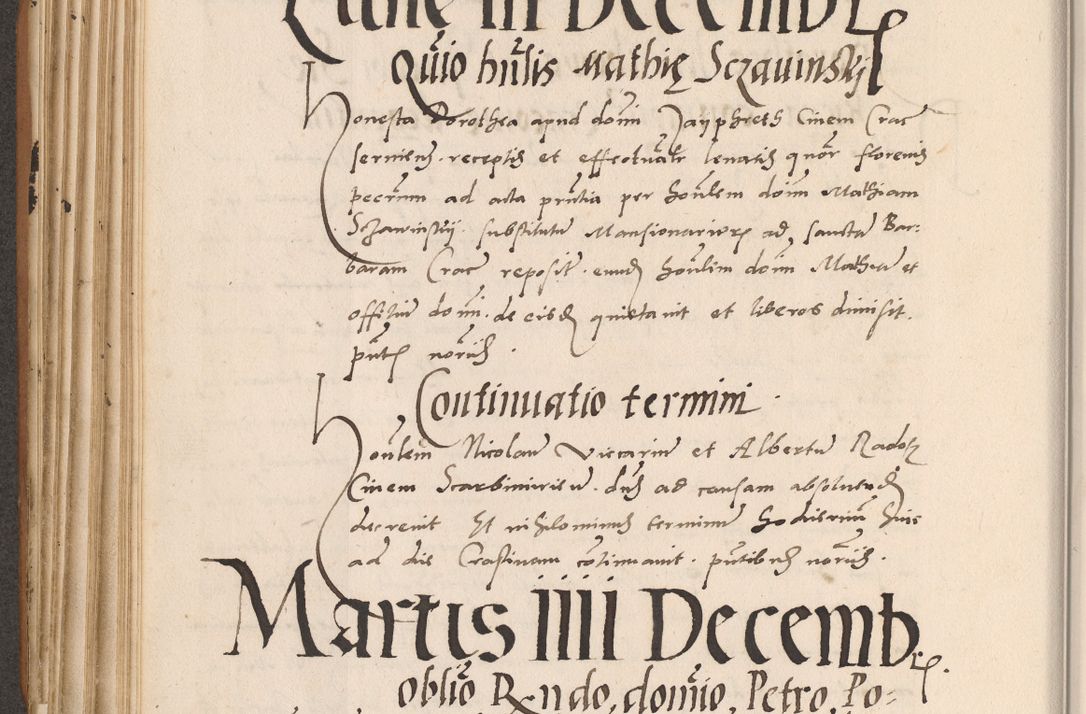 Lune iii Decembr
Quio hnlis Mathię Sczavinskij
Honesta Dorothea apud domi Jayphreth Ciuem Crac
seruiens receptis et effectualr leuatis quor florenis
pecunm ad acta prntia per honlem doim Mathiam
Sczawinskij substitutu Mansionariorr ad sancta Bar:
baram Crac reposit eund honlim doim Mathia et
offitiu domi de eisd quietauit et liberos dimisit.
pntb noriis.
Continuatio termini.
Honlem Nicolau Vicariu et Albertu Radoss
Ciuem Scarbimirien dns ad causam absoluend
decreuit Et nihilominus terminu hodiernu huic
ad die Crastinam continuauit. pntibus noriis.
Martis iiii Decembr.
oblio Rndo domio Petro Po: